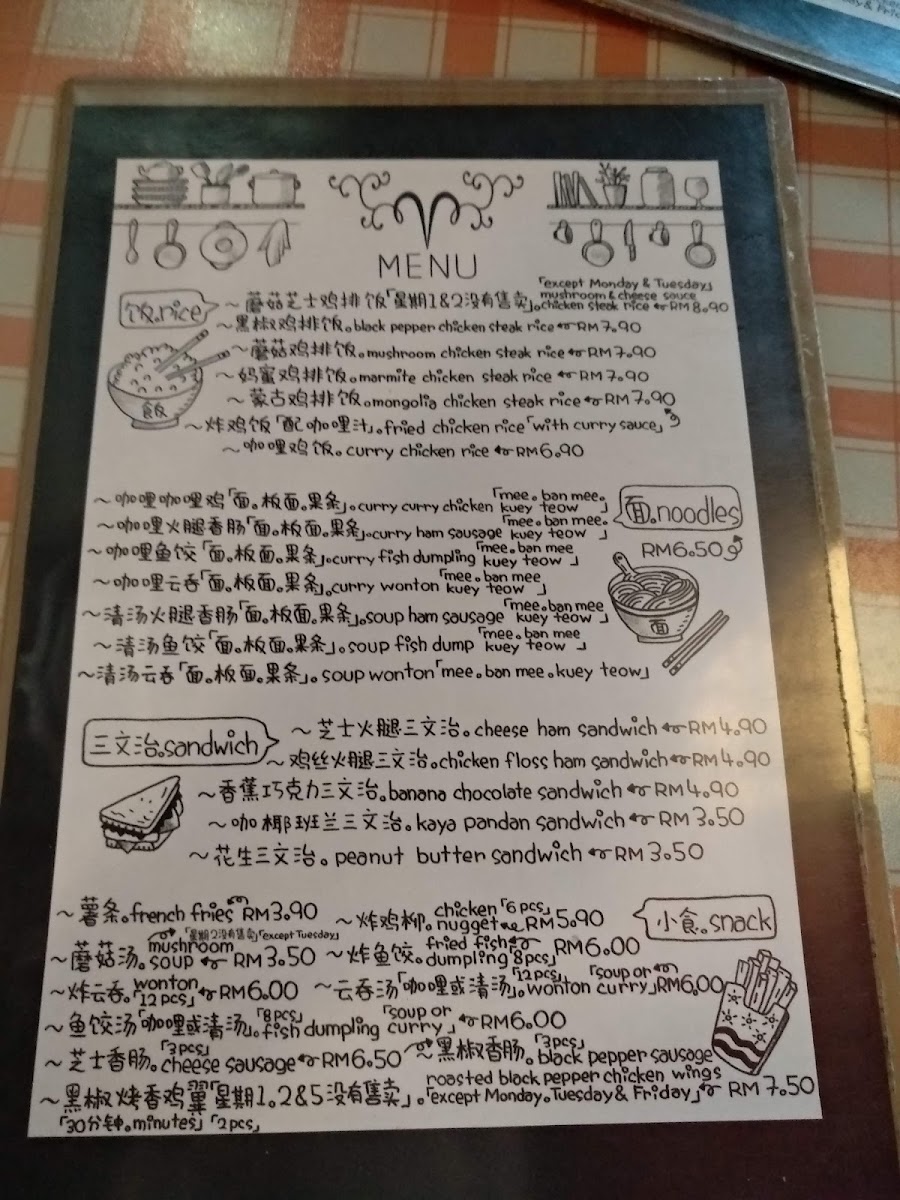 MENU
饭。rice
~ 蘑菇芝士鸡排饭「星期1&2没有售卖」。「except Monday & Tuesday」 mushroom & cheese sauce chicken steak rice RM8.90
~ 黑椒鸡排饭。black pepper chicken steak rice RM7.90
~ 蘑菇鸡排饭。mushroom chicken steak rice RM7.90
~ 妈蜜鸡排饭。marmite chicken steak rice RM7.90
~ 蒙古鸡排饭。mongolia chicken steak rice RM7.90
~ 炸鸡饭「配咖哩汁」。fried chicken rice「with curry sauce」
~ 咖哩鸡饭。curry chicken rice RM6.90
面。noodles
RM6.50
~ 咖哩咖哩鸡「面。板面。果条」。curry curry chicken「mee。ban mee。kuey teow」
~ 咖哩火腿香肠「面。板面。果条」。curry ham sausage「mee。ban mee。kuey teow」
~ 咖哩鱼饺「面。板面。果条」。curry fish dumpling「mee。ban mee kuey teow」
~ 咖哩云吞「面。板面。果条」。curry wonton「mee。ban mee kuey teow」
~ 清汤火腿香肠「面。板面。果条」。soup ham sausage「mee。ban mee kuey teow」
~ 清汤鱼饺「面。板面。果条」。soup fish dump「mee。ban mee kuey teow」
~ 清汤云吞「面。板面。果条」。soup wonton「mee。ban mee。kuey teow」
三文治。sandwich
~ 芝士火腿三文治。cheese ham sandwich RM4.90
~ 鸡丝火腿三文治。chicken floss ham sandwich RM4.90
~ 香蕉巧克力三文治。banana chocolate sandwich RM4.90
~ 咖椰班兰三文治。kaya pandan sandwich RM3.50
~ 花生三文治。peanut butter sandwich RM3.50
小食。snack
~ 薯条。french fries RM3.90
~ 炸鸡柳。chicken nugget「6pcs」RM5.90
~ 蘑菇汤。mushroom soup「星期2没有售卖」「except Tuesday」RM3.50
~ 炸鱼饺。fried fish dumpling「8pcs」RM6.00
~ 炸云吞。wonton「12pcs」RM6.00
~ 云吞汤「咖哩或清汤」。「12pcs」wonton「soup or curry」RM6.00
~ 鱼饺汤「咖哩或清汤」。「8pcs」fish dumpling「soup or curry」RM6.00
~ 芝士香肠。「3pcs」cheese sausage RM6.50
~ 黑椒香肠。「3pcs」black pepper sausage
~ 黑椒烤香鸡翼「星期1.2&5没有售卖」。roasted black pepper chicken wings「except Monday。Tuesday & Friday」RM7.50
「30分钟。minutes」「2pcs」
饭
面